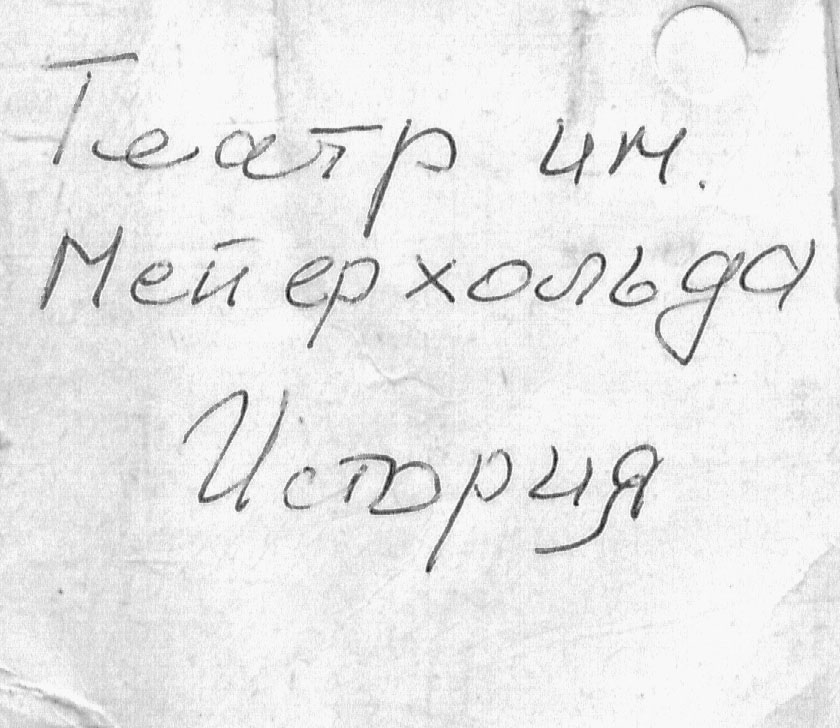 Театр им.
Мейерхольда
История